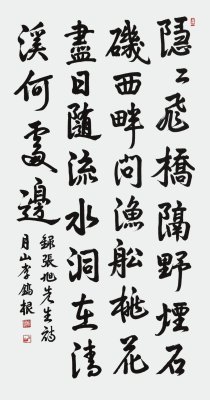 隱〻飛橋隔野煙石
磯西畔問漁舩桃花
盡日隨流水洞在清
溪何處邊
錄張旭先生詩
月山李根